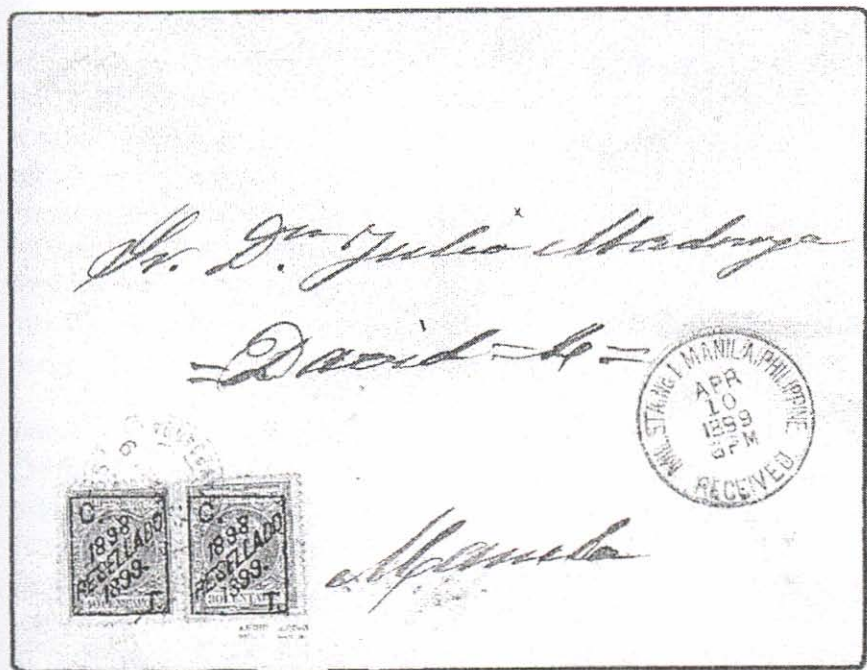 Sr. Dn. Julio Madruga
=David=4=
MIL. STA. No. 1 MANILA, PHILIPPINE
APR
10
1899
6PM
RECEIVED
C. 1898 RESELLADO 1899. T.
C. 1898 RESELLADO 1899 T.
Manila